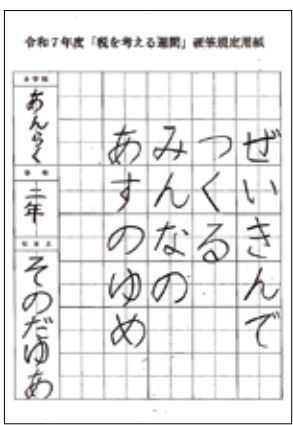 令和7年度「税を考える週間」硬筆規定用紙
ぜいきんで
つくる
みんなの
あすのゆめ
小学校
あんらく
学年
二年
そのだゆあ